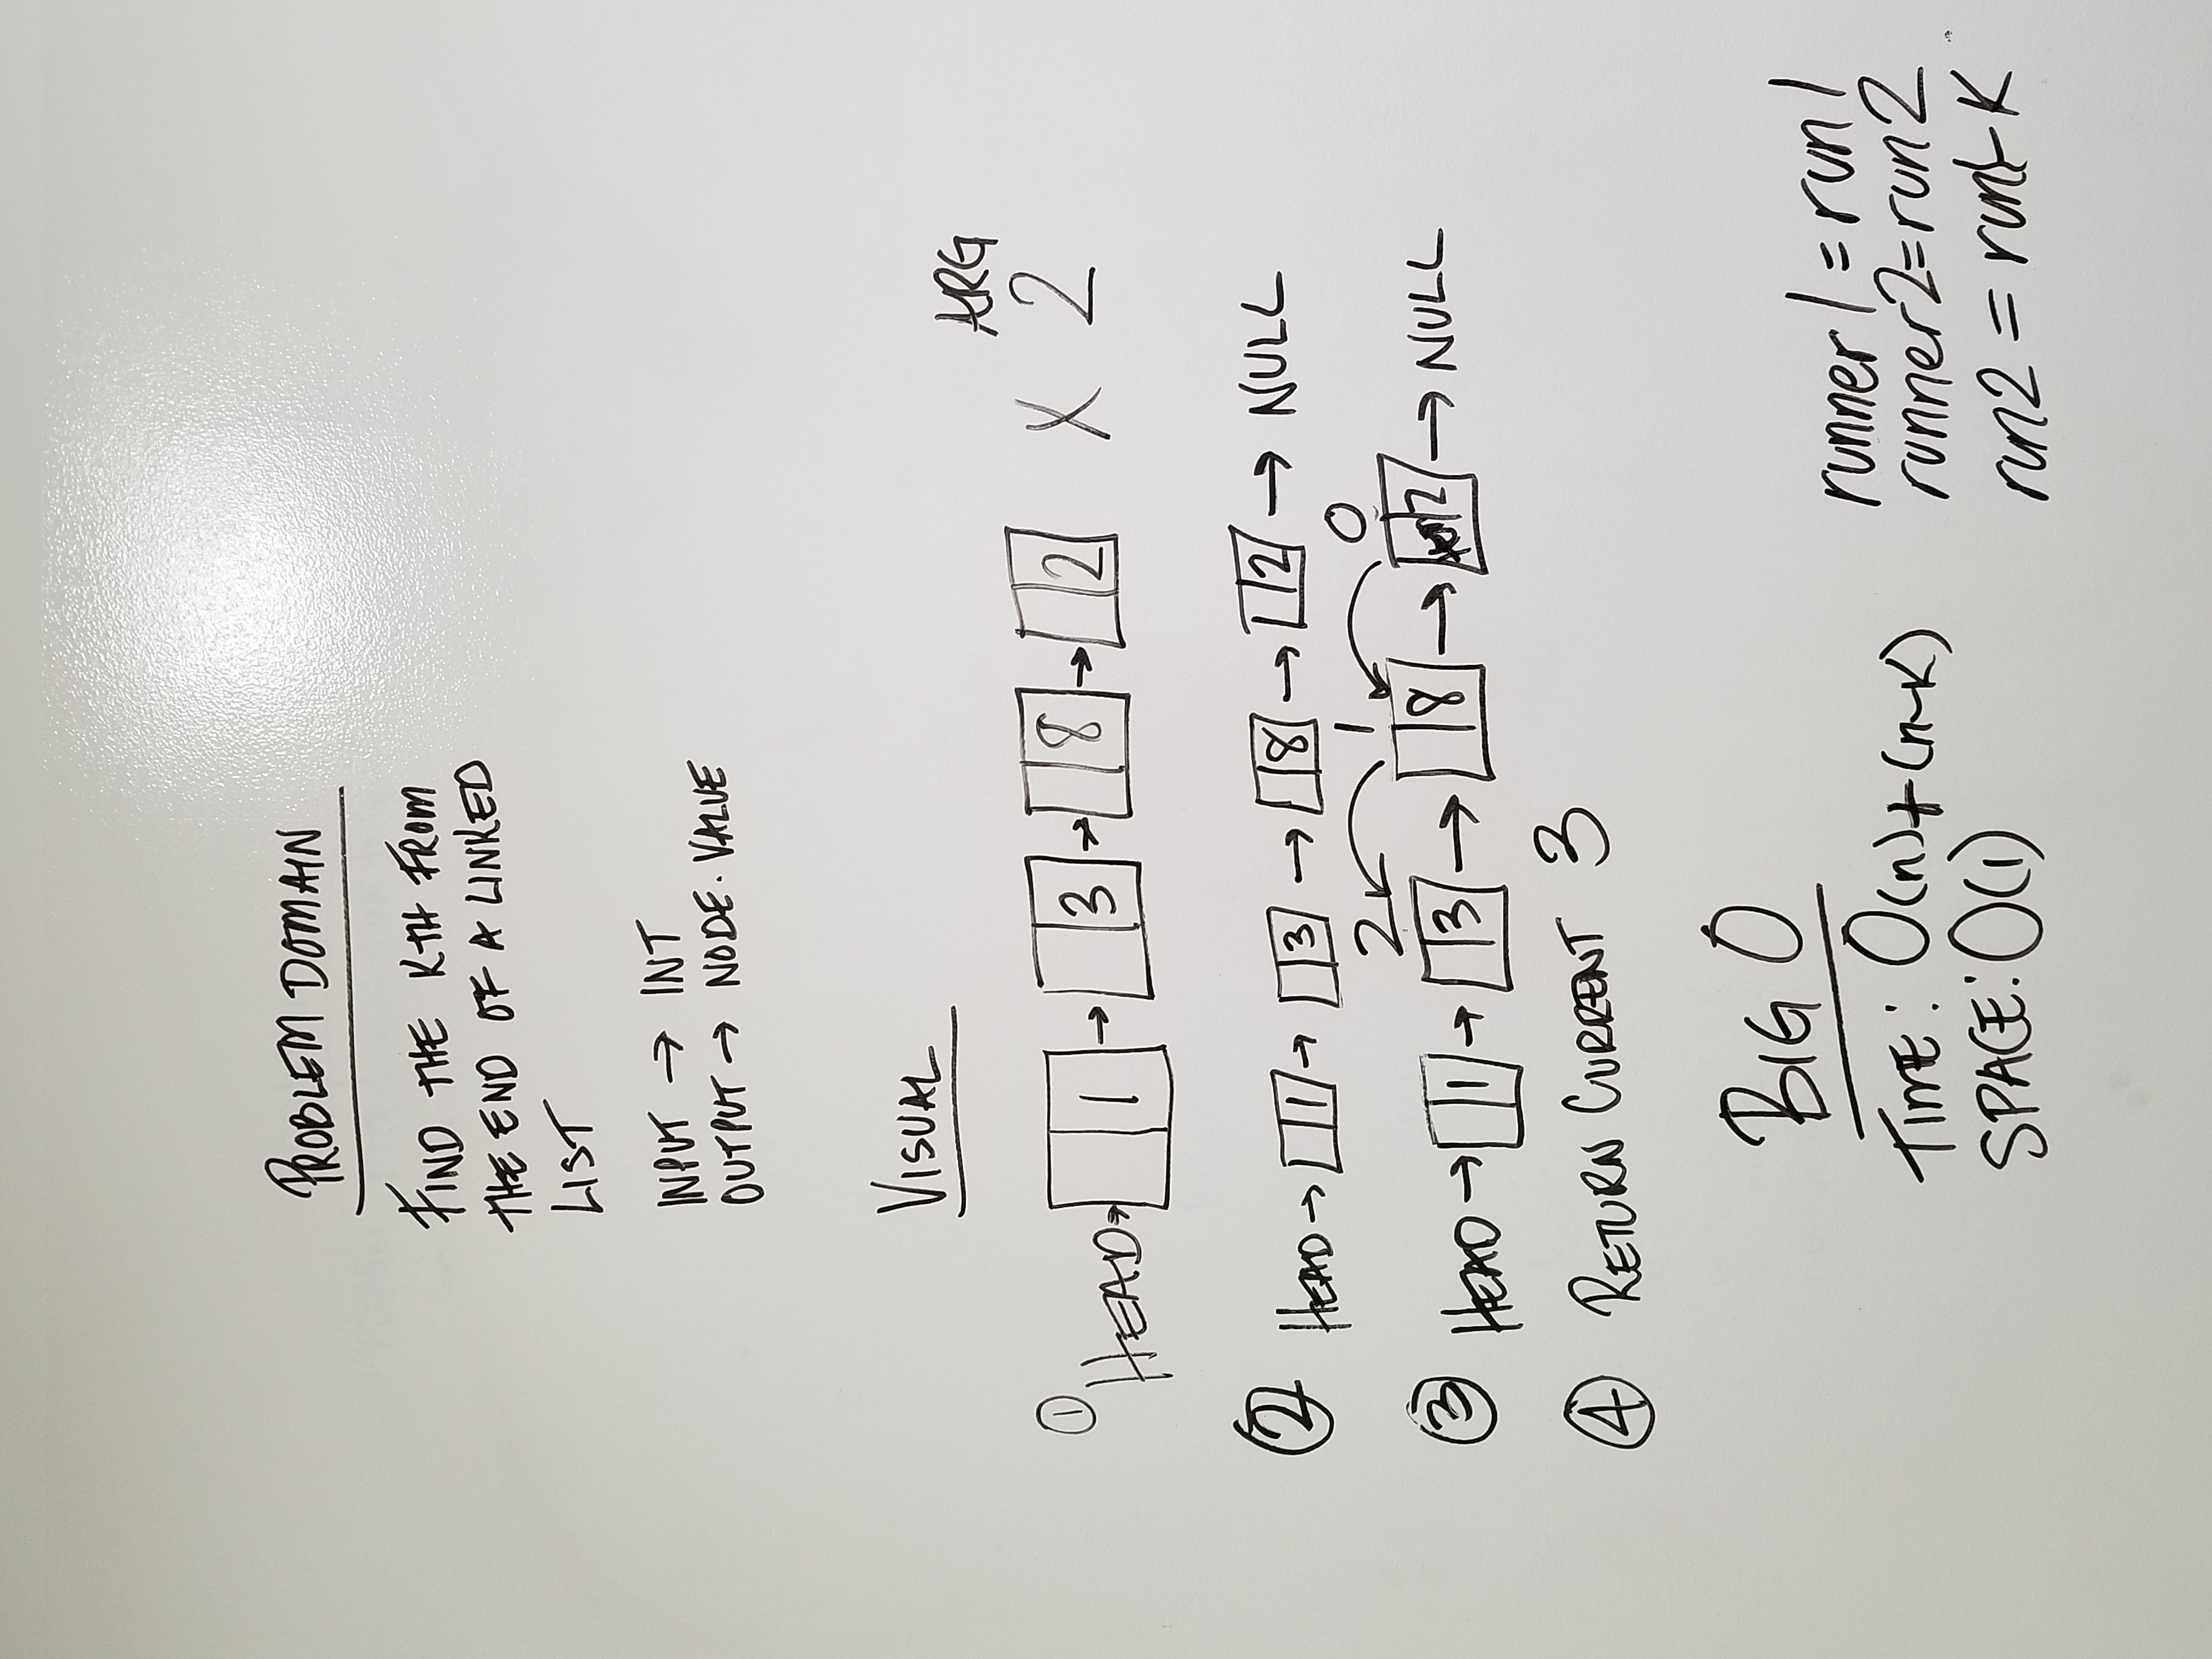 PROBLEM DOMAIN
FIND THE KTH FROM
THE END OF A LINKED
LIST
INPUT → INT
OUTPUT → NODE.VALUE
VISUAL
ARG
① HEAD→ 1 → 3 → 8 → 2 X 2
② HEAD → 1 → 3 → 8 → 2 → NULL
2 1 0
③ HEAD → 1 → 3 → 8 → 2 → NULL
④ RETURN CURRENT 3
BIG O
TIME: O(n)+(n-K)
SPACE: O(1)
runner1 = run1
runner2=run2
run2 = run1-K